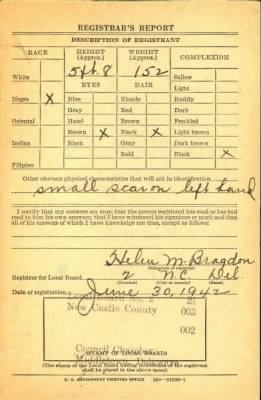 REGISTRAR'S REPORT
DESCRIPTION OF REGISTRANT
RACE HEIGHT (Approx.) WEIGHT (Approx.) COMPLEXION
White 5ft 8 152 Sallow
EYES HAIR Light
Negro X Blue Blonde Ruddy
Gray Red Dark
Oriental Hazel Brown Freckled
Brown X Black X Light brown
Indian Black Gray Dark brown
Bald Black X
Filipino
Other obvious physical characteristics that will aid in identification
small scar on left hand
I certify that my answers are true; that the person registered has read or has had
read to him his own answers; that I have witnessed his signature or mark and that
all of his answers of which I have knowledge are true, except as follows:
Helen M. Bragdon
(Signature of registrar)
Registrar for Local Board 2 N.C. Del.
Date of registration June 30, 1942
Local Board No. 2 21
New Castle County 003
002
Council Chamber
Middletown, Delaware
(STAMP OF LOCAL BOARD)
(The stamp of the Local Board having jurisdiction of the registrant
shall be placed in the above space.)
U. S. GOVERNMENT PRINTING OFFICE